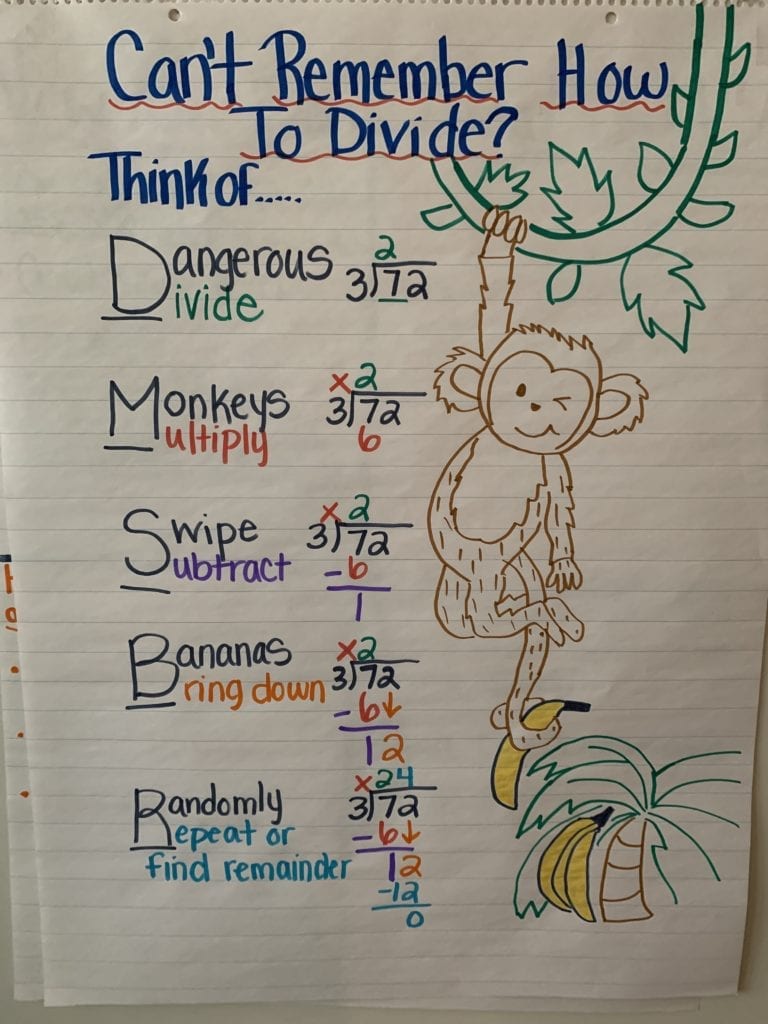 Can't Remember How
To Divide?
Think of.....
Dangerous
Divide
2
3)72
Monkeys
Multiply
x2
3)72
6
Swipe
Subtract
x2
3)72
-6
1
Bananas
Bring down
x2
3)72
-6↓
12
Randomly
Repeat or
find remainder
x24
3)72
-6↓
12
-12
0